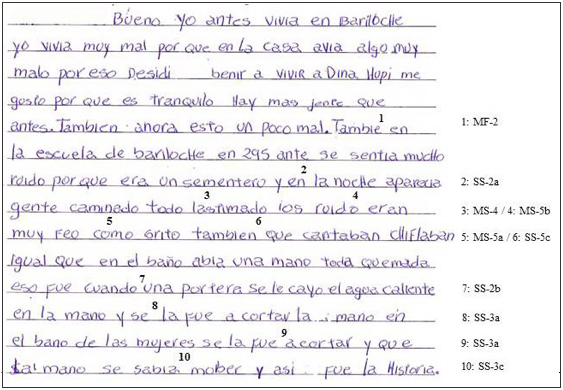 Bueno yo antes vivia en Bariloche
yo vivia muy mal por que en la casa avia algo muy
malo por eso Desidi benir a vivir a Dina Hupi me
gosto por que es tranquilo Hay mas jente que
antes. Tambien ahora esto un poco mal. Tambie en
1
1: MF-2
la escuela de bariloche en 295 ante se sentia mucho
ruido por que era un sementero y en la noche aparecia
2
2: SS-2a
gente caminado todo lastimado los ruido eran
3 4
3: MS-4 / 4: MS-5b
muy feo como grito tambien que cantaban chiflaban
5 6
5: MS-5a / 6: SS-5c
igual que en el baño abia una mano toda quemada
eso fue cuando una portera se le cayo el agua caliente
7
7: SS-2b
en la mano y se la fue a cortar la mano en
8
8: SS-3a
el bano de las mujeres se la fue a cortar y que
9
9: SS-3a
tal mano se sabia mober y asi fue la Historia.
10
10: SS-3c